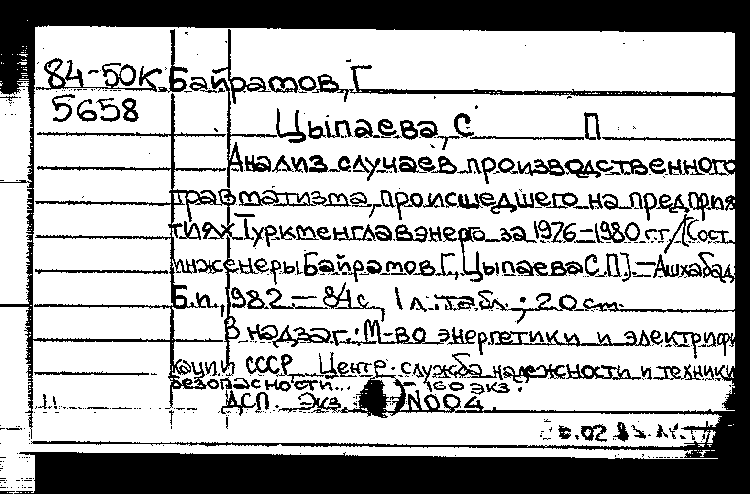 84-50К Байрамов, Г
5658
Цыпаева, С П
Анализ случаев производственного
травматизма, происшедшего на предприя
тиях Туркменглавэнерго за 1976-1980 г.г./[Сост.
инженеры Байрамов Г., Цыпаева С.П]. — Ашхабад,
Б.п., 1982 — 84 с, 1 л. табл.; 20 см.
В надзаг.: М-во энергетики и электрифи
кации СССР Центр. служба надежности и техники
безопасности... — 160 экз.
ДСП. Экз. ) N004.